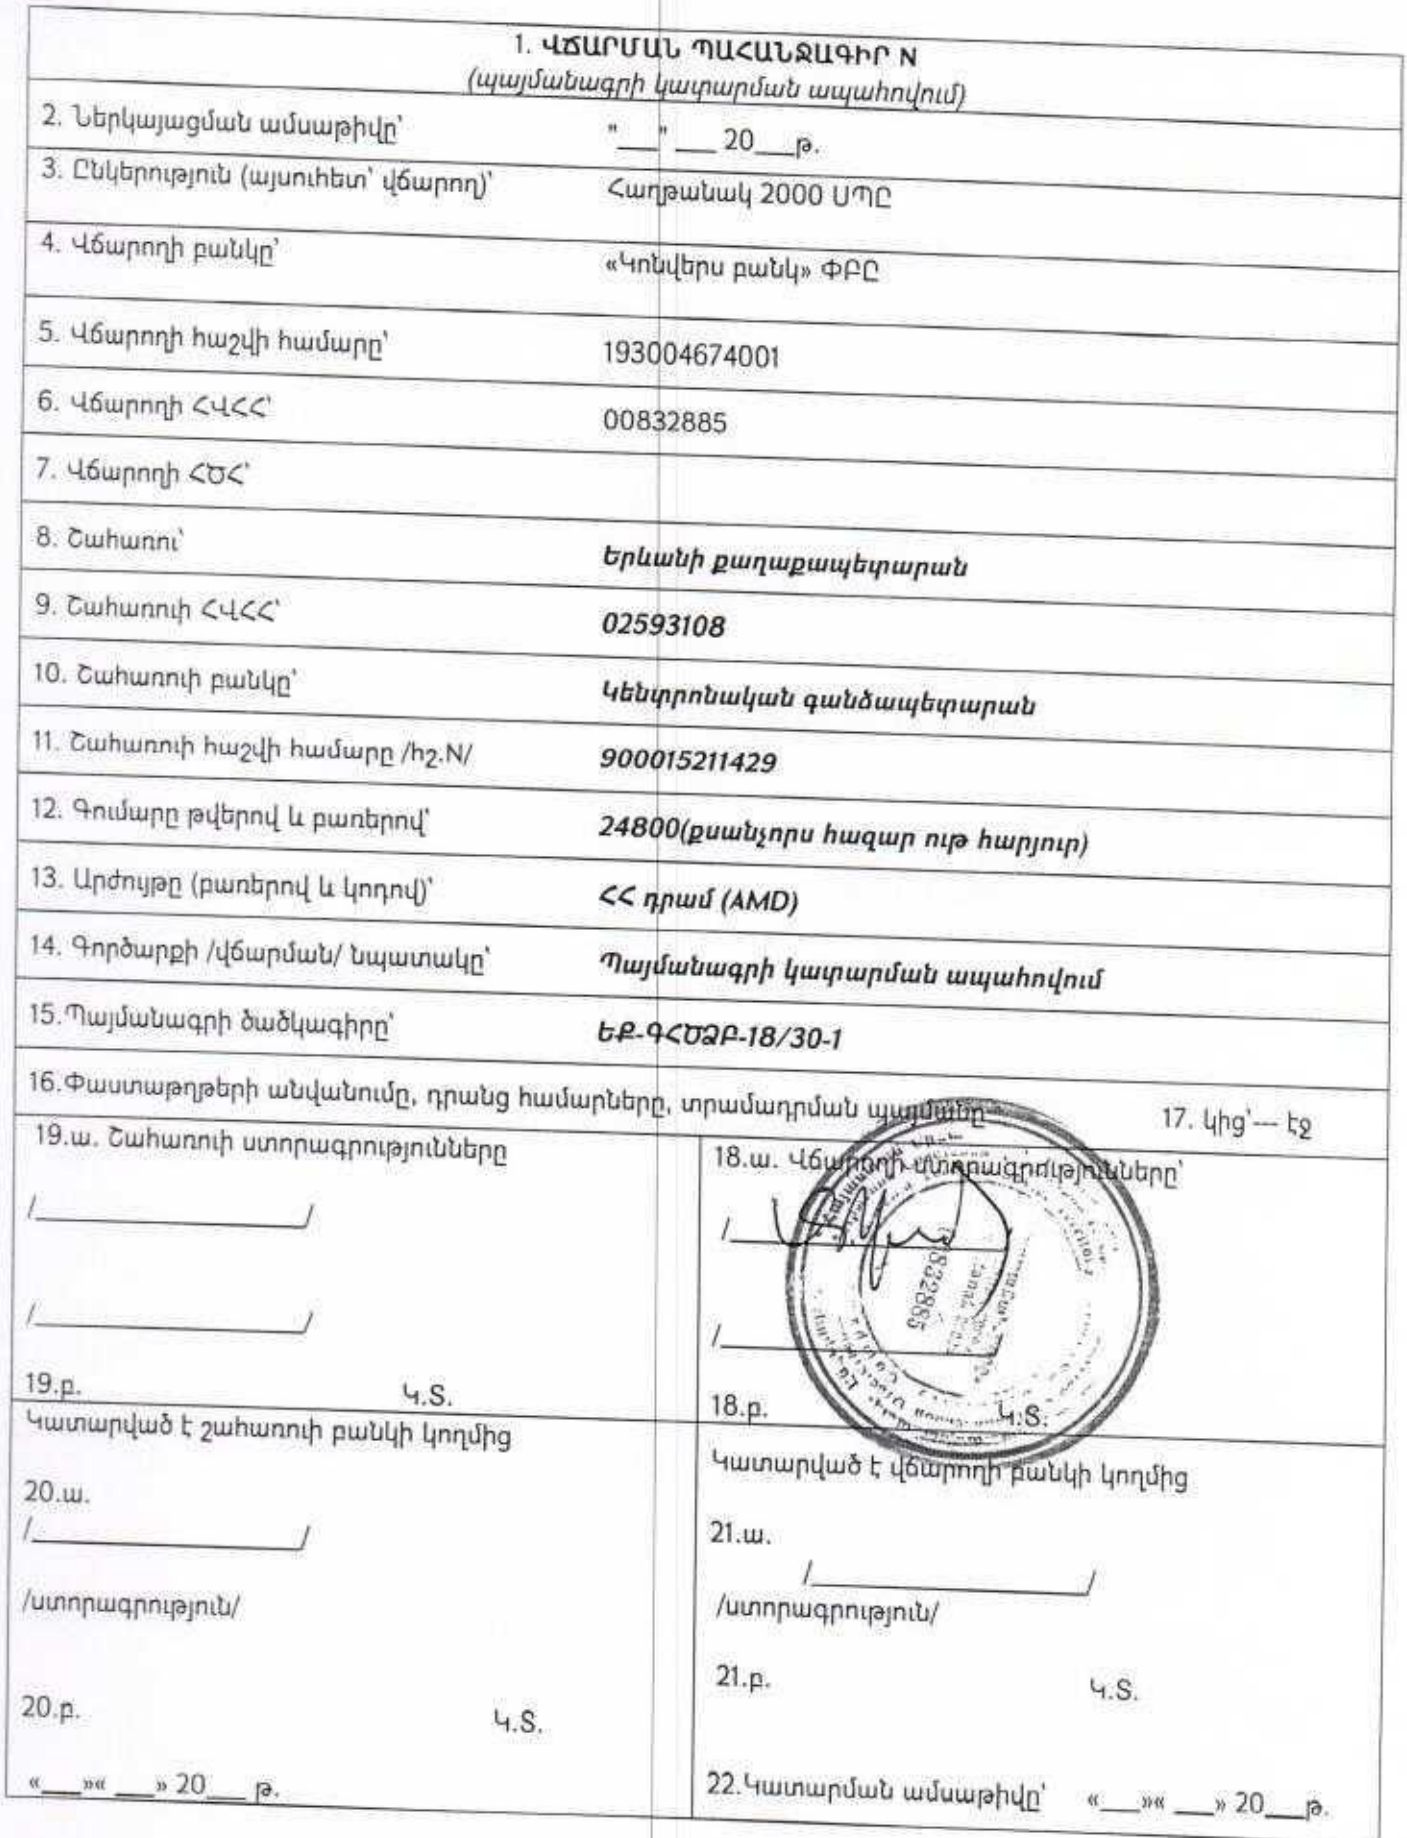 1. ՎՃԱՐՄԱՆ ՊԱՀԱՆՋԱԳԻՐ N
(պայմանագրի կատարման ապահովում)
2. Ներկայացման ամսաթիվը՝ "___" ___ 20___թ.
3. Ընկերություն (այսուհետ՝ վճարող)՝ Հաղթանակ 2000 ՍՊԸ
4. Վճարողի բանկը՝ «Կոնվերս բանկ» ՓԲԸ
5. Վճարողի հաշվի համարը՝ 193004674001
6. Վճարողի ՀՎՀՀ՝ 00832885
7. Վճարողի ՀԾՀ՝
8. Շահառու՝ Երևանի քաղաքապետարան
9. Շահառուի ՀՎՀՀ՝ 02593108
10. Շահառուի բանկը՝ Կենտրոնական գանձապետարան
11. Շահառուի հաշվի համարը /հշ.N/ 900015211429
12. Գումարը թվերով և բառերով՝ 24800(քսանչորս հազար ութ հարյուր)
13. Արժույթը (բառերով և կոդով)՝ ՀՀ դրամ (AMD)
14. Գործարքի /վճարման/ նպատակը՝ Պայմանագրի կատարման ապահովում
15.Պայմանագրի ծածկագիրը՝ ԵՔ-ԳՀԾՁԲ-18/30-1
16.Փաստաթղթերի անվանումը, դրանց համարները, տրամադրման պայմանը 17. կից՝--- էջ
19.ա. Շահառուի ստորագրությունները
/____________________/
/____________________/
19.բ. Կ.Տ.
18.ա. Վճարողի ստորագրությունները՝
/____________________
/____________________/
00832885
18.բ. Կ.Տ.
Կատարված է շահառուի բանկի կողմից
20.ա.
/____________________/
/ստորագրություն/
20.բ. Կ.Տ.
«___»« ___» 20___ թ.
Կատարված է վճարողի բանկի կողմից
21.ա.
/____________________/
/ստորագրություն/
21.բ. Կ.Տ.
22.Կատարման ամսաթիվը՝ «___»« ___» 20___թ.